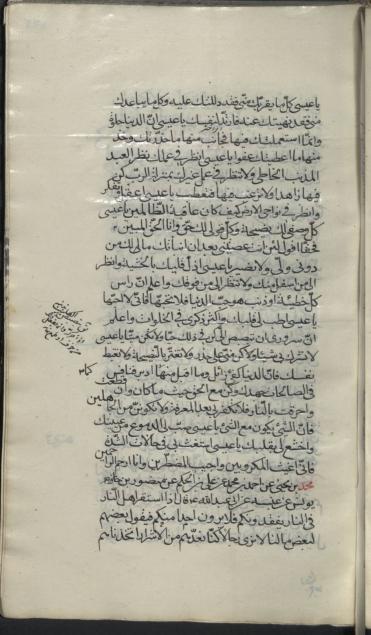 يا عيسى كل ما يقربك مني فقد دللتك عليه وكل ما يباعدك
مني فقد نهيتك عنه فارتد لنفسك يا عيسى ان الدنيا حلوة
وانما استعملتك فيها فجانب منها ما حذرتك وخذ
منها ما اعطيتك عفوا يا عيسى انظر في عملك نظر العبد
المذنب الخاطي ولا تنظر في عمل غيرك بمنزلة الرب كن
فيها زاهدا ولا ترغب فيها فتعطب يا عيسى اعقل وتفكر
وانظر في نواحي الارض كيف كان عاقبة الظالمين يا عيسى
كل وصفي لك نصيحة وكل قولي لك حق وانا الحق المبين
فحقا اقول لئن انت عصيتني بعد ان انبأتك مالك من
دوني ولي ولا نصير يا عيسى اذل قلبك بالخشية وانظر
الى من اسفل منك ولا تنظر الى من فوقك واعلم ان راس
كل خطيئة وذنب هو حب الدنيا فلا تحبها فاني لا احبها
يا عيسى اطب لي قلبك واكثر ذكري في الخلوات واعلم
ان سروري ان تبصبص الي كن في ذلك حيا ولا تكن ميتا يا عيسى
لا تشرك بي شيئا وكن مني على حذر ولا تغتر بالنصيحة ولا تغبط
نفسك فان الدنيا كفيء زائل وما اقبل منها كما ادبر فنافس
في الصالحات جهدك وكن مع الحق حيث ما كان وان قطعت
واحرقت بالنار فلا تكفر بي بعد المعرفة ولا تكونن من الجاهلين
فان الشيء يكون مع الشيء يا عيسى صب لي الدموع من عينيك
واخشع لي بقلبك يا عيسى استغث بي في حالات الشدة
فاني اغيث المكروبين واجيب المضطرين وانا ارحم الراحمين
محمد بن يحيى عن احمد بن محمد عن علي بن الحكم عن منصور بن
يونس عن عنبسة عن ابي عبد الله ع قال اذا استقر اهل النار
في النار يفقدونكم فلا يرون منكم احدا فيقول بعضهم
لبعض ما لنا لا نرى رجالا كنا نعدهم من الاشرار اتخذناهم